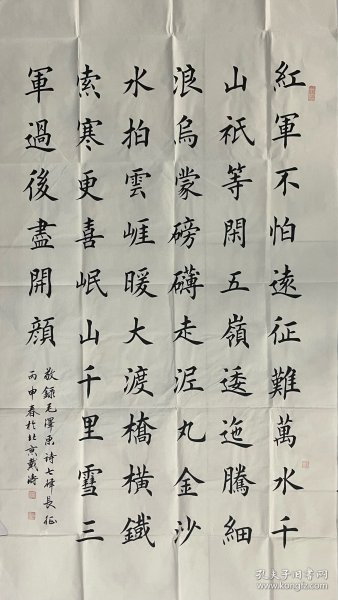 紅軍不怕遠征難萬水千
山祇等閑五嶺逶迤騰細
浪烏蒙磅礴走泥丸金沙
水拍雲崕暖大渡橋橫鐵
索寒更喜岷山千里雪三
軍過後盡開顔
敬錄毛澤東詩七律長征
丙申春於北京戴濤
孔夫子旧书网